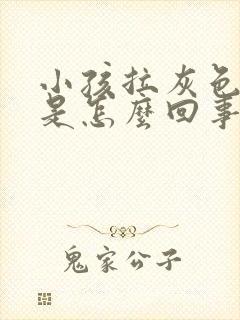 小孩拉灰色
是怎麽回事
鬼家公子